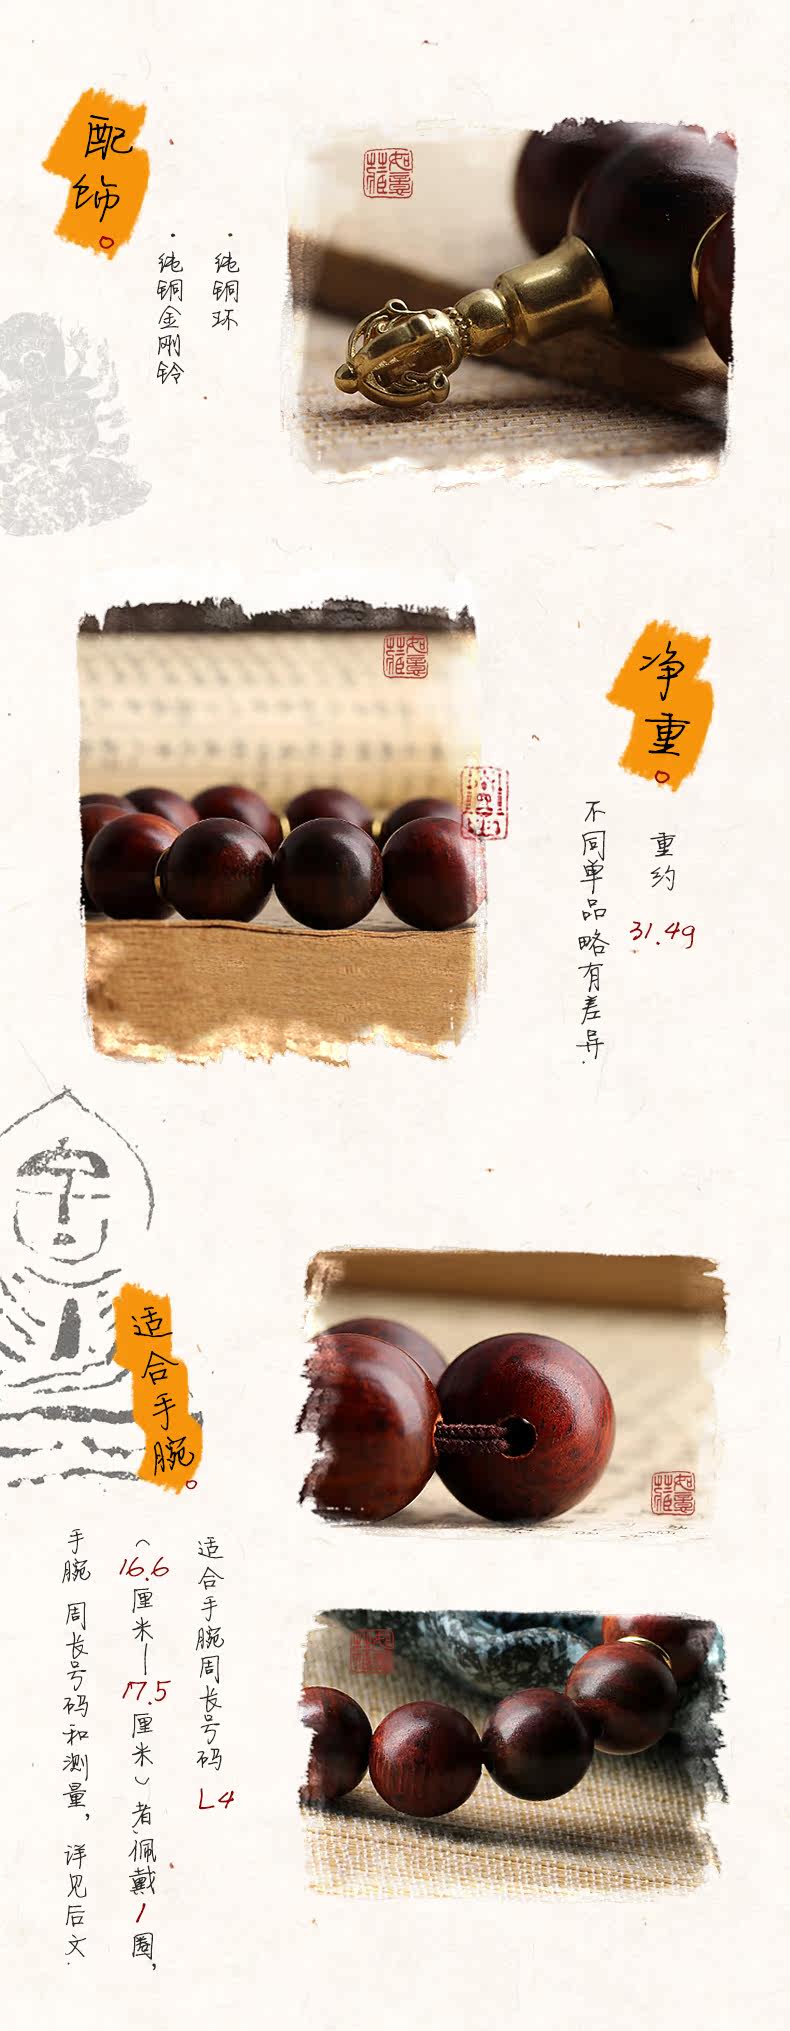 配饰。
·纯铜环
·纯铜金刚铃
如意
净重。
重约
31.4g
不同单品略有差异.
如意
适合手腕。
适合手腕周长号码
L4
(16.6厘米—17.5厘米)者佩戴1圈,
手腕周长号码和测量,详见后文.
如意
如意